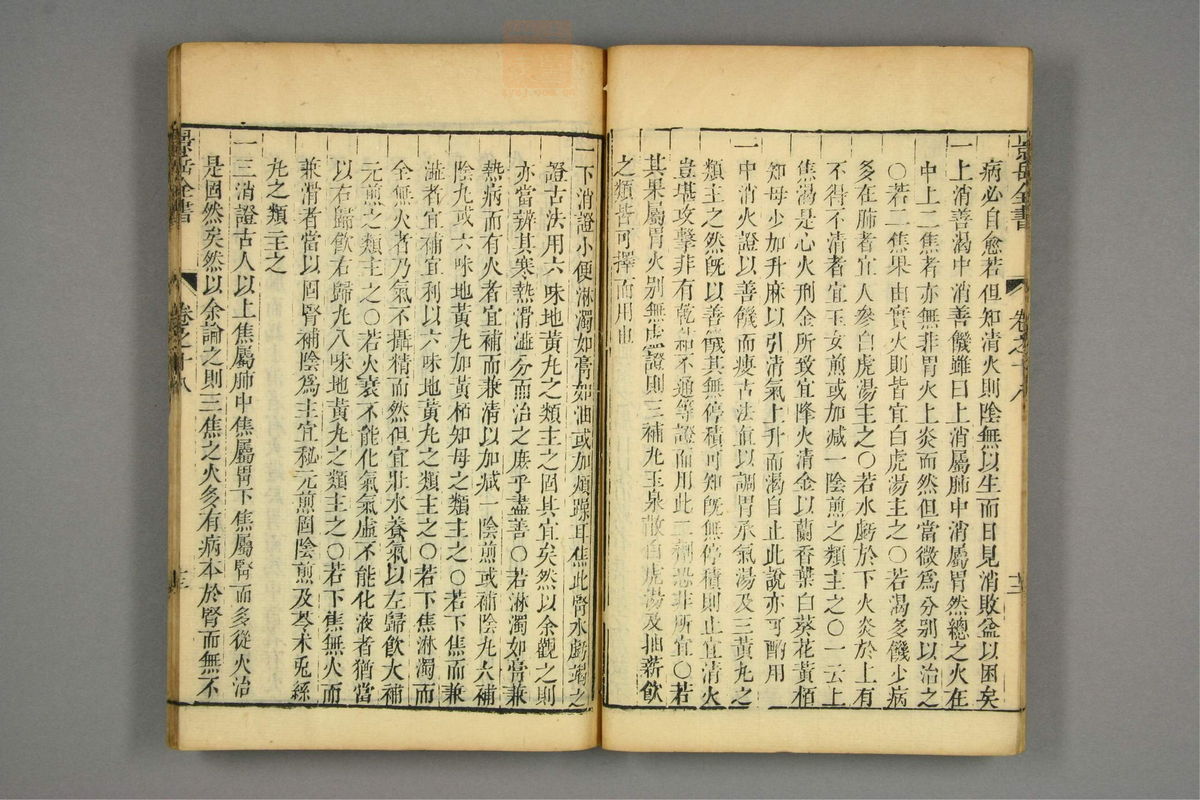 景岳全書 卷之十八
病必自愈若但知清火則陰無以生而日見消敗益以困矣
一上消善渴中消善饑雖曰上消屬肺中消屬胃然總之火在
中上二焦者亦無非胃火上炎而然但當微爲分別以治之
○若二焦果由實火則皆宜白虎湯主之○若渴多饑少病
多在肺者宜人參白虎湯主之○若水虧於下火炎於上有
不得不清者宜玉女煎或加减一陰煎之類主之○一云上
焦渴是心火刑金所致宜降火清金以蘭香葉白葵花黃栢
知母少加升麻以引清氣上升而渴自止此說亦可酌用
一中消火證以善饑而瘦古法直以調胃承氣湯及三黃丸之
類主之然旣以善饑其無停積可知旣無停積則止宜清火
豈堪攻擊非有乾結不通等證而用此二劑恐非所宜○若
其果屬胃火別無虛證則三補丸玉泉散白虎湯及抽薪飲
之類皆可擇而用也
一下消證小便淋濁如膏如油或加煩躁耳焦此腎水虧竭之
證古法用六味地黃丸之類主之固其宜矣然以余觀之則
亦當辨其寒熱滑澁分而治之庶乎盡善○若淋濁如膏兼
熱病而有火者宜補而兼清以加减一陰煎或補陰丸大補
陰丸或六味地黃丸加黃栢知母之類主之○若下焦而兼
澁者宜補宜利以六味地黃丸之類主之○若下焦淋濁而
全無火者乃氣不攝精而然但宜壯水養氣以左歸飲大補
元煎之類主之○若火衰不能化氣氣虛不能化液者猶當
以右歸飲右歸丸八味地黃丸之類主之○若下焦無火而
兼滑者當以固腎補陰爲主宜秘元煎固陰煎及苓朮兎絲
丸之類主之
一三消證古人以上焦屬肺中焦屬胃下焦屬腎而多從火治
是固然矣然以余論之則三焦之火多有病本於腎而無不
景岳全書 卷之十八